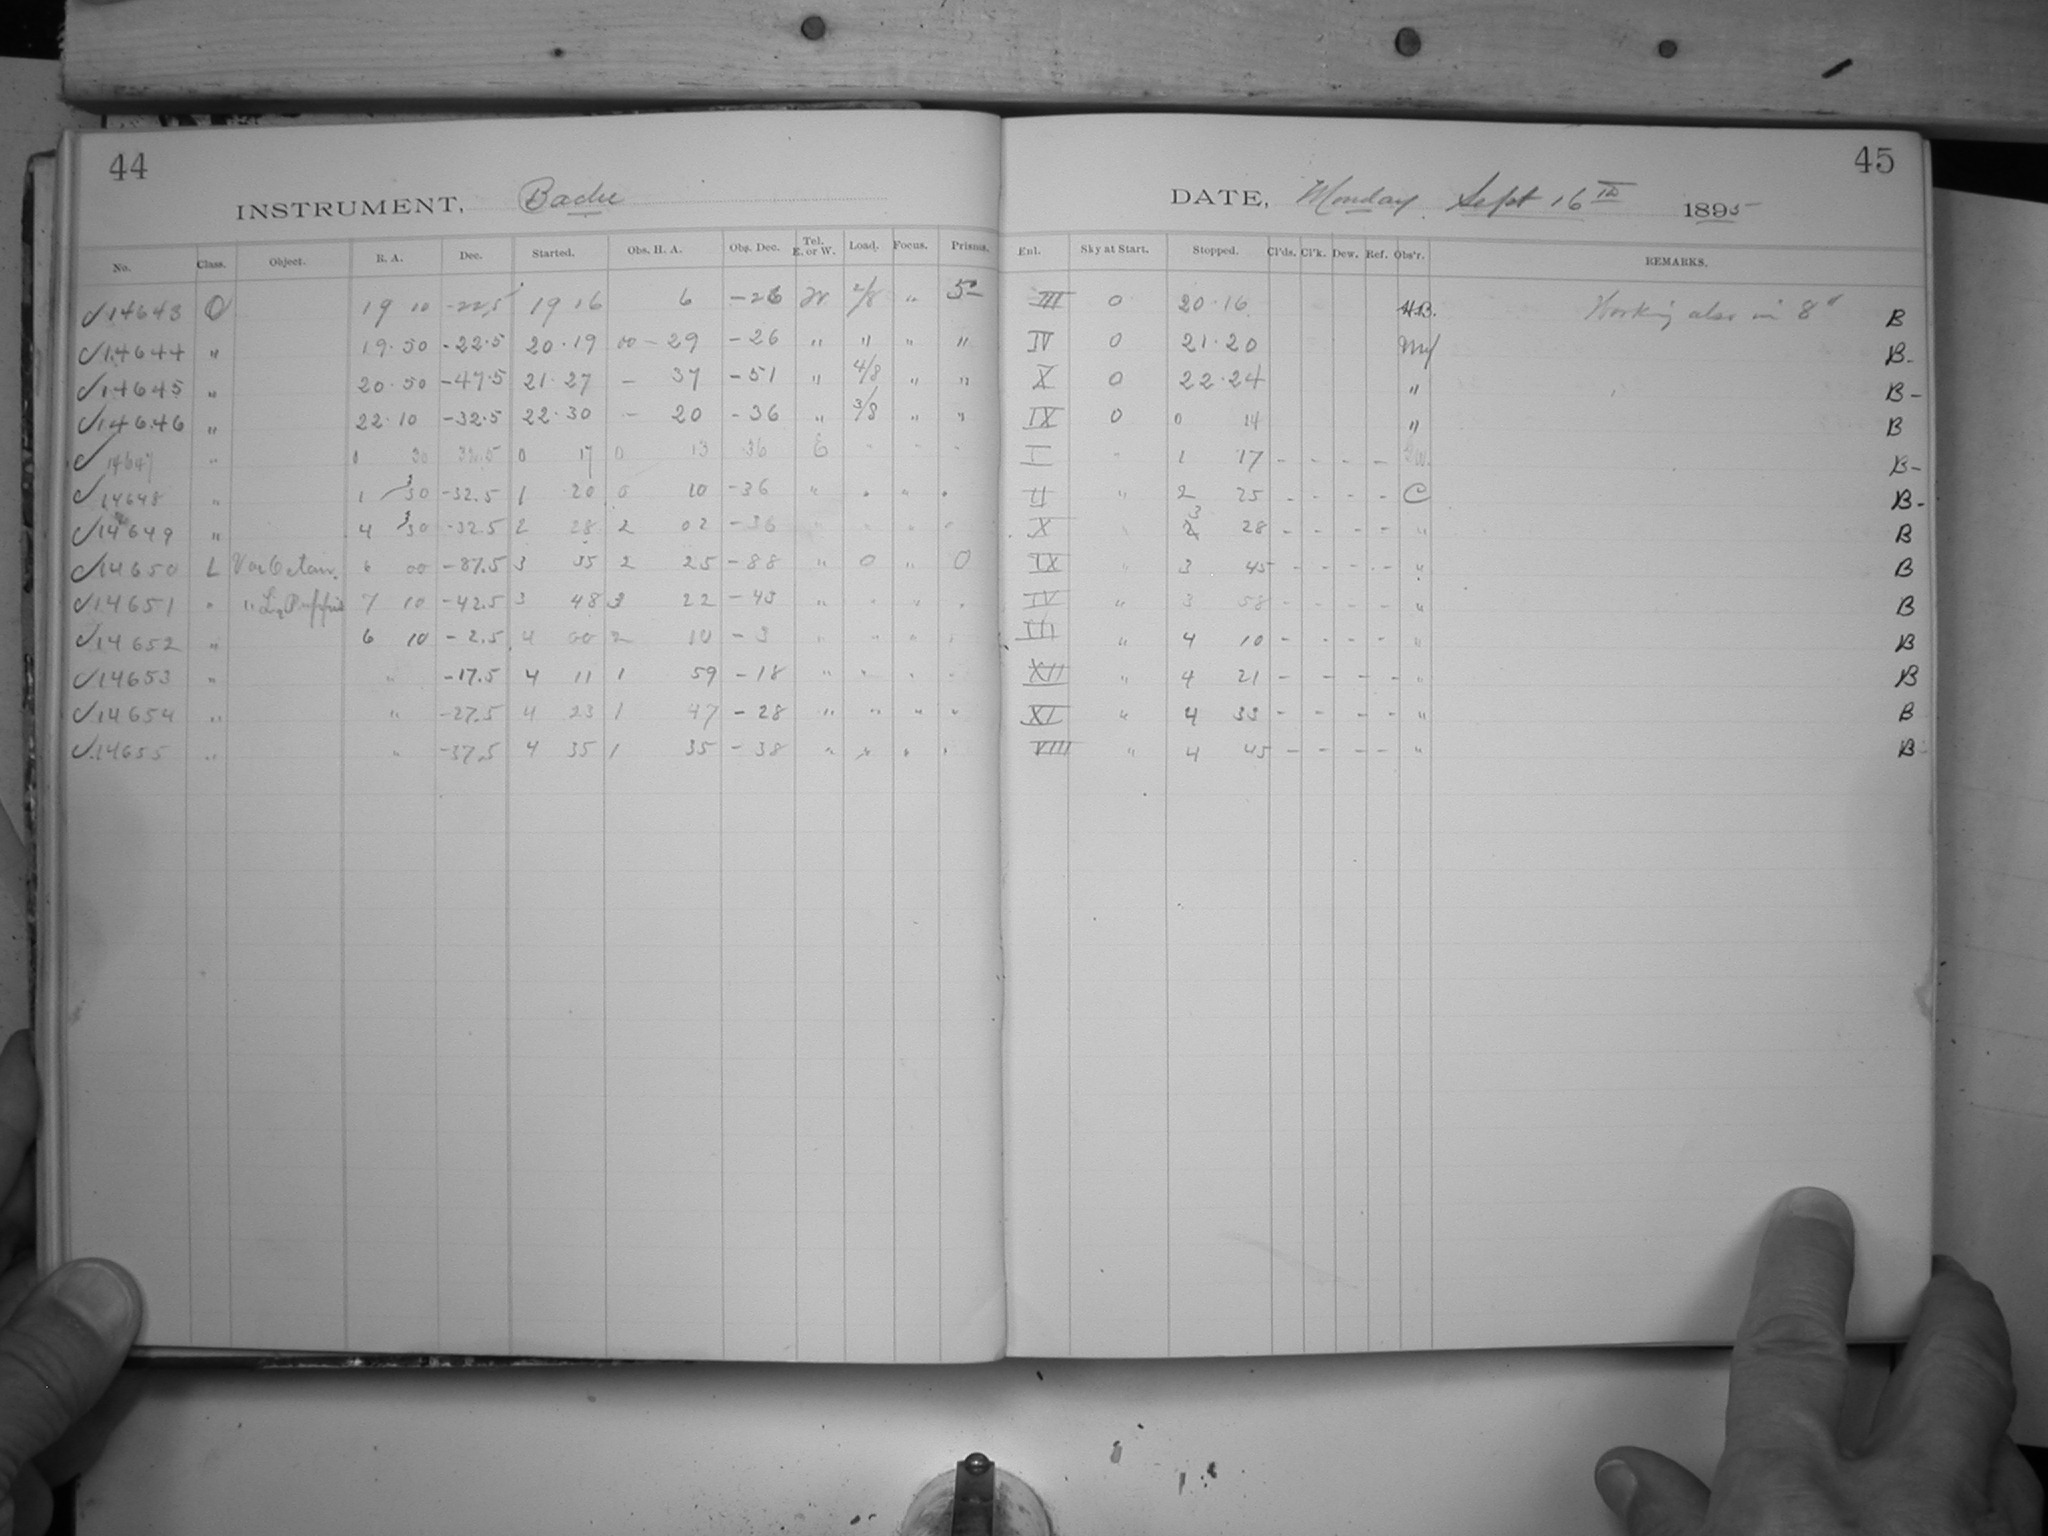 44
45
INSTRUMENT, Bache
DATE, Monday Sept 16th 1895
No. Class. Object. R. A. Dec. Started. Obs. H. A. Obs. Dec. Tel. E. or W. Load. Focus. Prisms. Enl. Sky at Start. Stopped. Cl'ds. Cl'k. Dew. Ref. Obs'r. REMARKS.
✓14643 O 19 10 -22.5 19 16 6 -26 W 2/8 " 5 III 0 20.16. H.B. Working also in 8" B
✓14644 " 19.50 -22.5 20.19 00 - 29 -26 " " " " IV 0 21.20 B-
✓14645 " 20.50 -47.5 21.27 - 37 -51 " 4/8 " " X 0 22.24 " B-
✓14646 " 22.10 -32.5 22.30 - 20 -36 " 3/8 " " IX 0 0 14 " B
✓14647 " 0 30 32.5 0 17 0 13 36 E " " " I " 1 17 - - - - B-
✓14648 " 1 30 -32.5 1 20 0 10 -36 " " " " II " 2 25 - - - - C B-
✓14649 " 4 30 -32.5 2 28 2 02 -36 " " " " X " 3 28 - - - - " B
✓14650 L 6 00 -87.5 3 35 2 25 -88 " 0 " 0 IX " 3 45 - - - - " B
✓14651 " " L2 Puppis 7 10 -42.5 3 48 3 22 -43 " " " " IV " 3 58 - - - - " B
✓14652 " 6 10 -2.5 4 00 2 10 -3 " " " " III " 4 10 - - - - " B
✓14653 " " -17.5 4 11 1 59 -18 " " " " XII " 4 21 - - - - " B
✓14654 " " -27.5 4 23 1 47 -28 " " " " XI " 4 33 - - - - " B
✓14655 " " -37.5 4 35 1 35 -38 " " " " VIII " 4 45 - - - - " B-